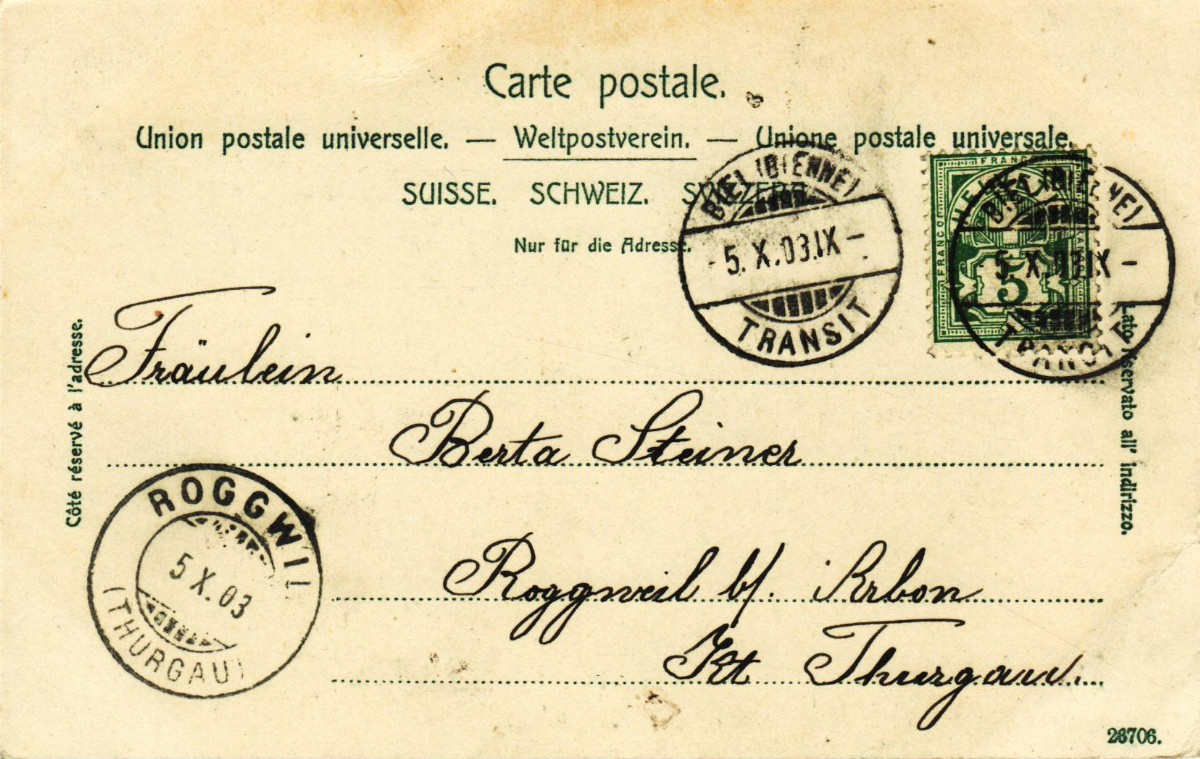 Carte postale.
Union postale universelle. — Weltpostverein. — Unione postale universale.
SUISSE. SCHWEIZ. SVIZZERA.
Nur für die Adresse.
BIEL (BIENNE)
- 5. X. 03. IX -
TRANSIT
FRANCO
HELVETIA
FRANCO
5
BIEL (BIENNE)
5. X. 03. IX -
TRANSIT
Côté réservé à l'adresse.
Lato riservato all' indirizzo.
Fräulein
Berta Steiner
Roggweil b/ Arbon
Kt Thurgau.
ROGGWIL
5 X. 03
(THURGAU)
26706.